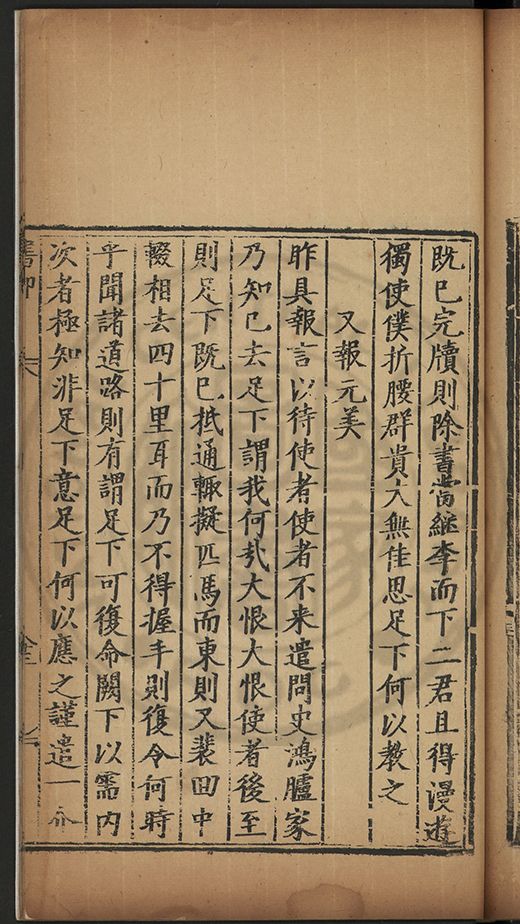 既已完牘則除書當繼李而下二君且得漫遊
獨使僕折腰群貴大無佳思足下何以教之
又報元美
昨具報言以待使者使者不來遣問史鴻臚家
乃知已去足下謂我何哉大恨大恨使者後至
則足下既已抵通輙擬匹馬而東則又裴回中
輟相去四十里耳而乃不得握手則復令何時
乎聞諸道路則有謂足下可復命闕下以需內
次者極知非足下意足下何以應之謹遣一介